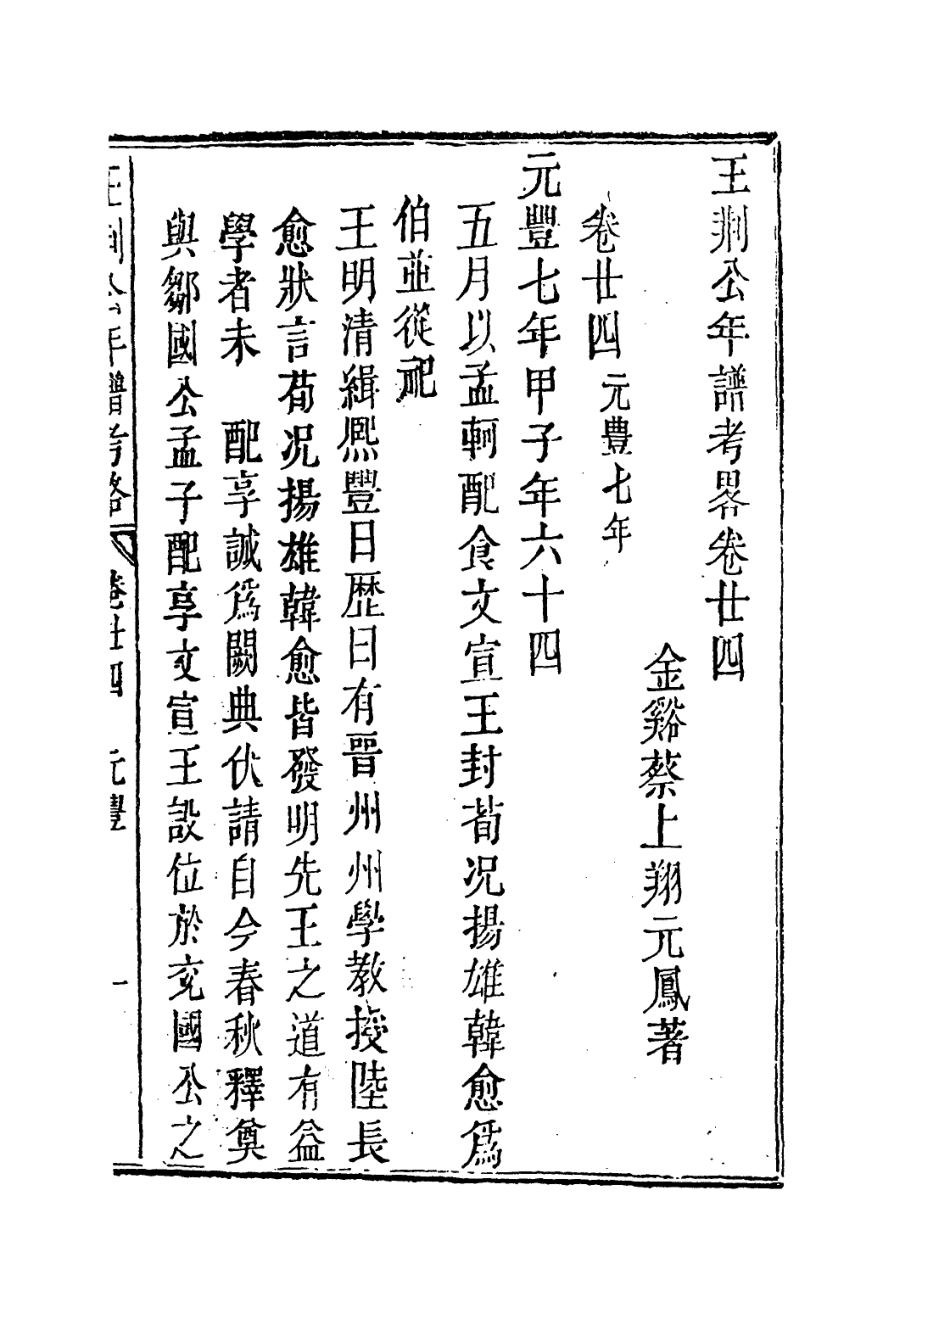 王荆公年譜考畧卷廿四
金谿蔡上翔元鳳著
卷廿四 元豐七年
元豐七年甲子年六十四
五月以孟軻配食文宣王封荀况揚雄韓愈爲
伯並從祀
王明清緝熙豐日歷日有晉州州學教授陸長
愈狀言荀况揚雄韓愈皆發明先王之道有益
學者未 配享誠爲闕典伏請自今春秋釋奠
與鄒國公孟子配享文宣王設位於兖國公之
王荆公年譜考略 卷廿四 元豐 一